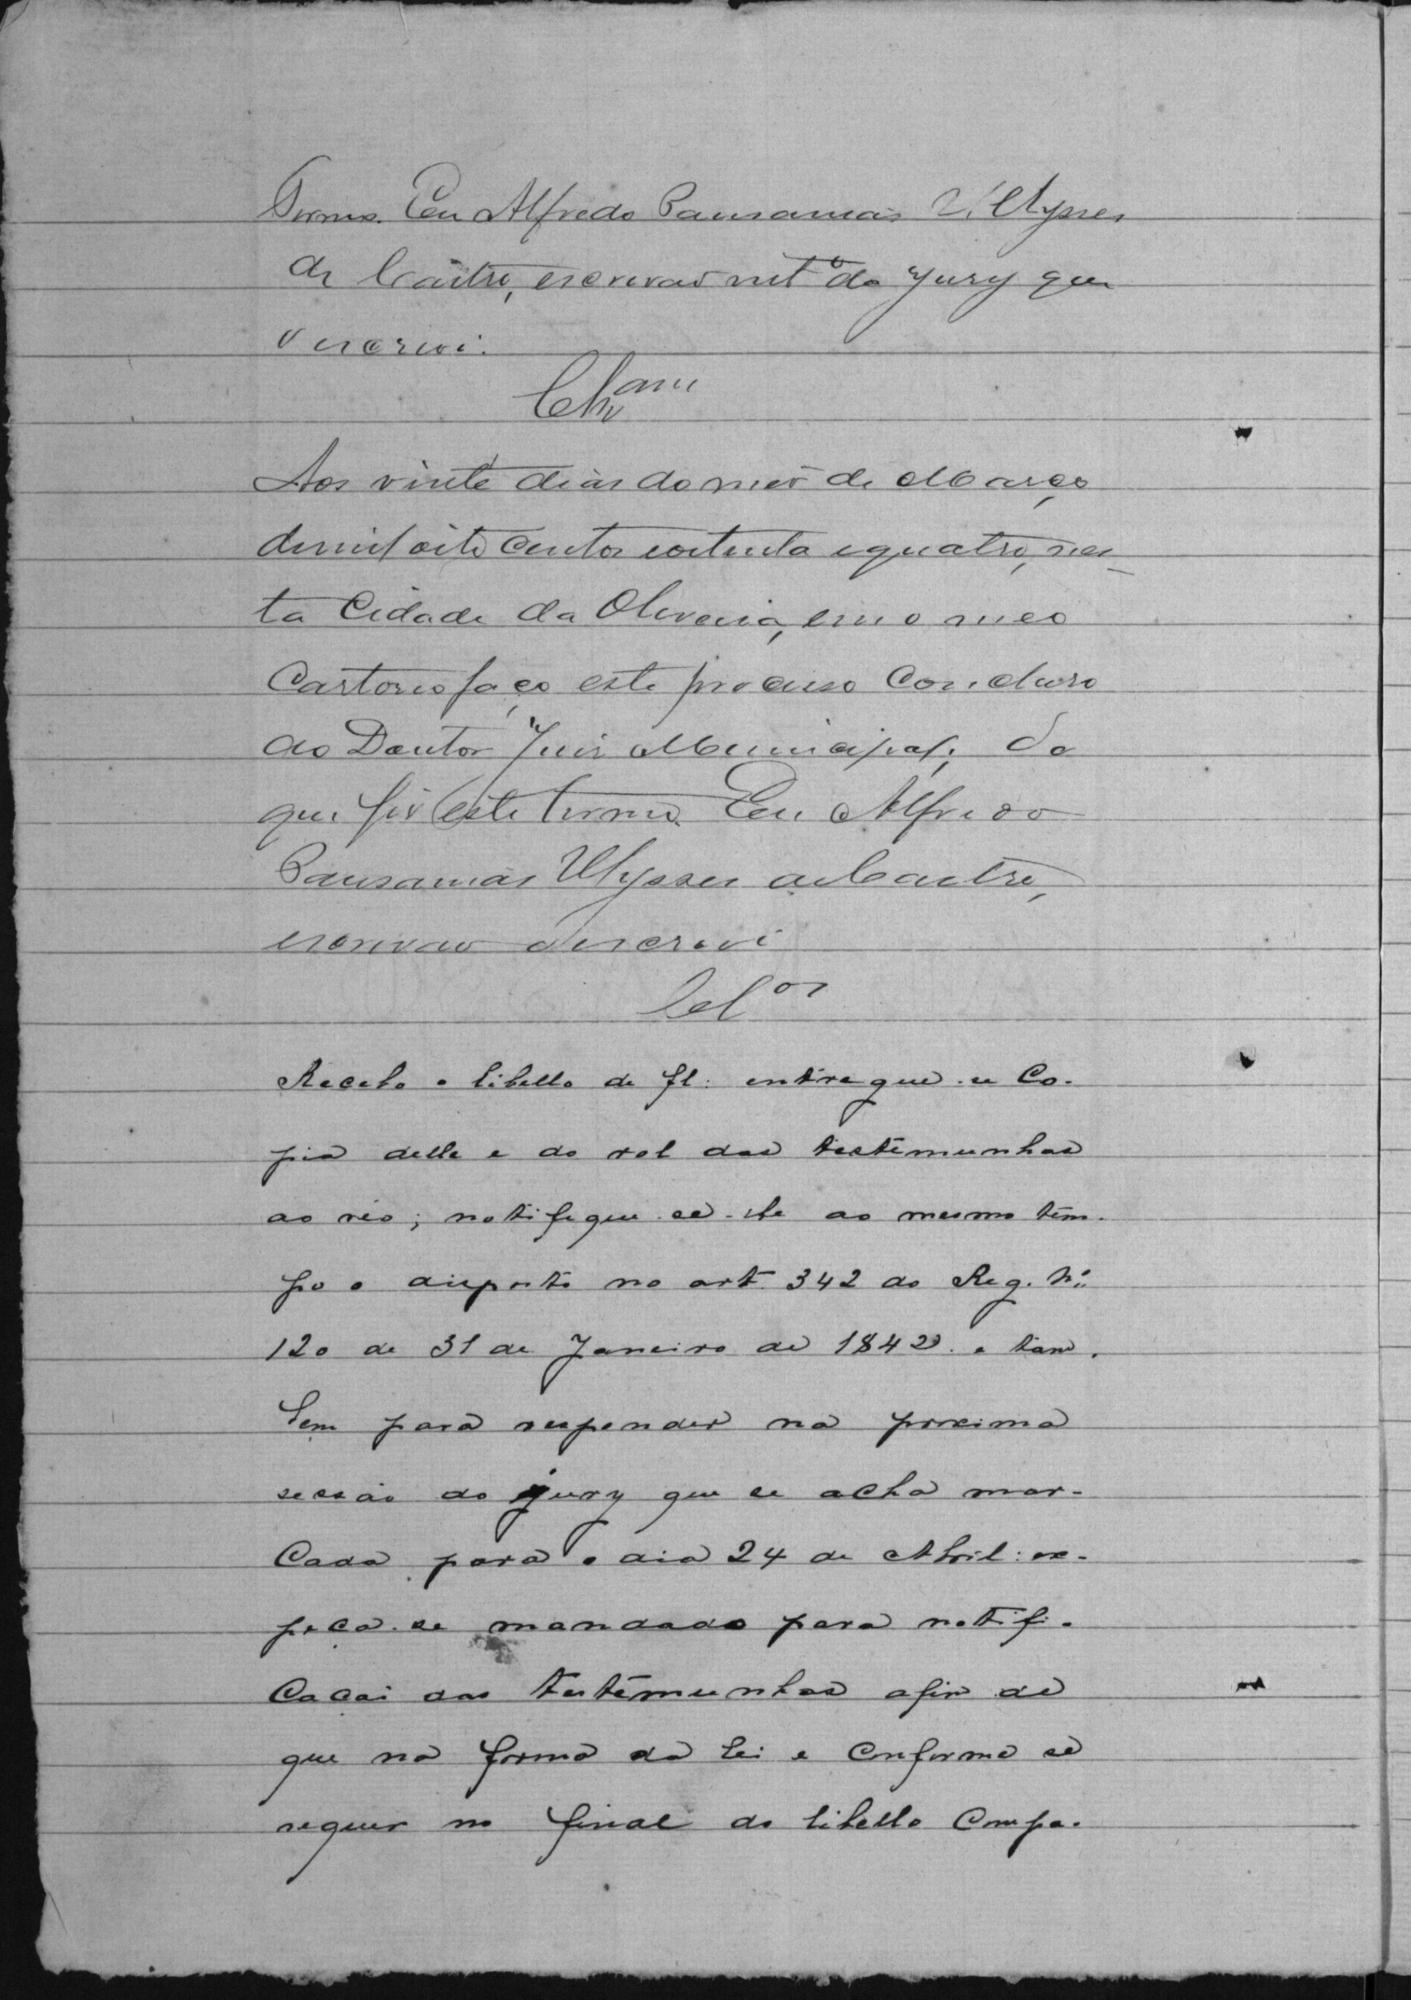 Termo. Eu Alfredo Pausanias Ulysses
de Castro, escrivão intº do Jury que
o escrevi.
Clsam
Aos vinte dias do mes de Março
de mil oito centos e oitenta e quatro, nes_
ta Cidade da Oliveira, em o meo
Cartorio faço este processo concluso
ao Doutor Juis Municipal; do
que fis este termo. Eu Alfredo
Pausanias Ulysses de Castro,
escrivão o escrevi
Clos
Recebo o libello de fl: entregue-se co-
pia delle e do rol das testemunhas
ao reo; notifique-se-lhe ao mesmo tem-
po o disposto no art. 342 do Reg. Nº
120 de 31 de Janeiro de 1842 e tam-
bem para responder na proxima
sessão do jury que se acha mar-
cada para o dia 24 de Abril: ex-
peça-se mandado para notifi-
cação das testemunhas afim de
que na forma da lei e conforme se
requer no final do libello compa-